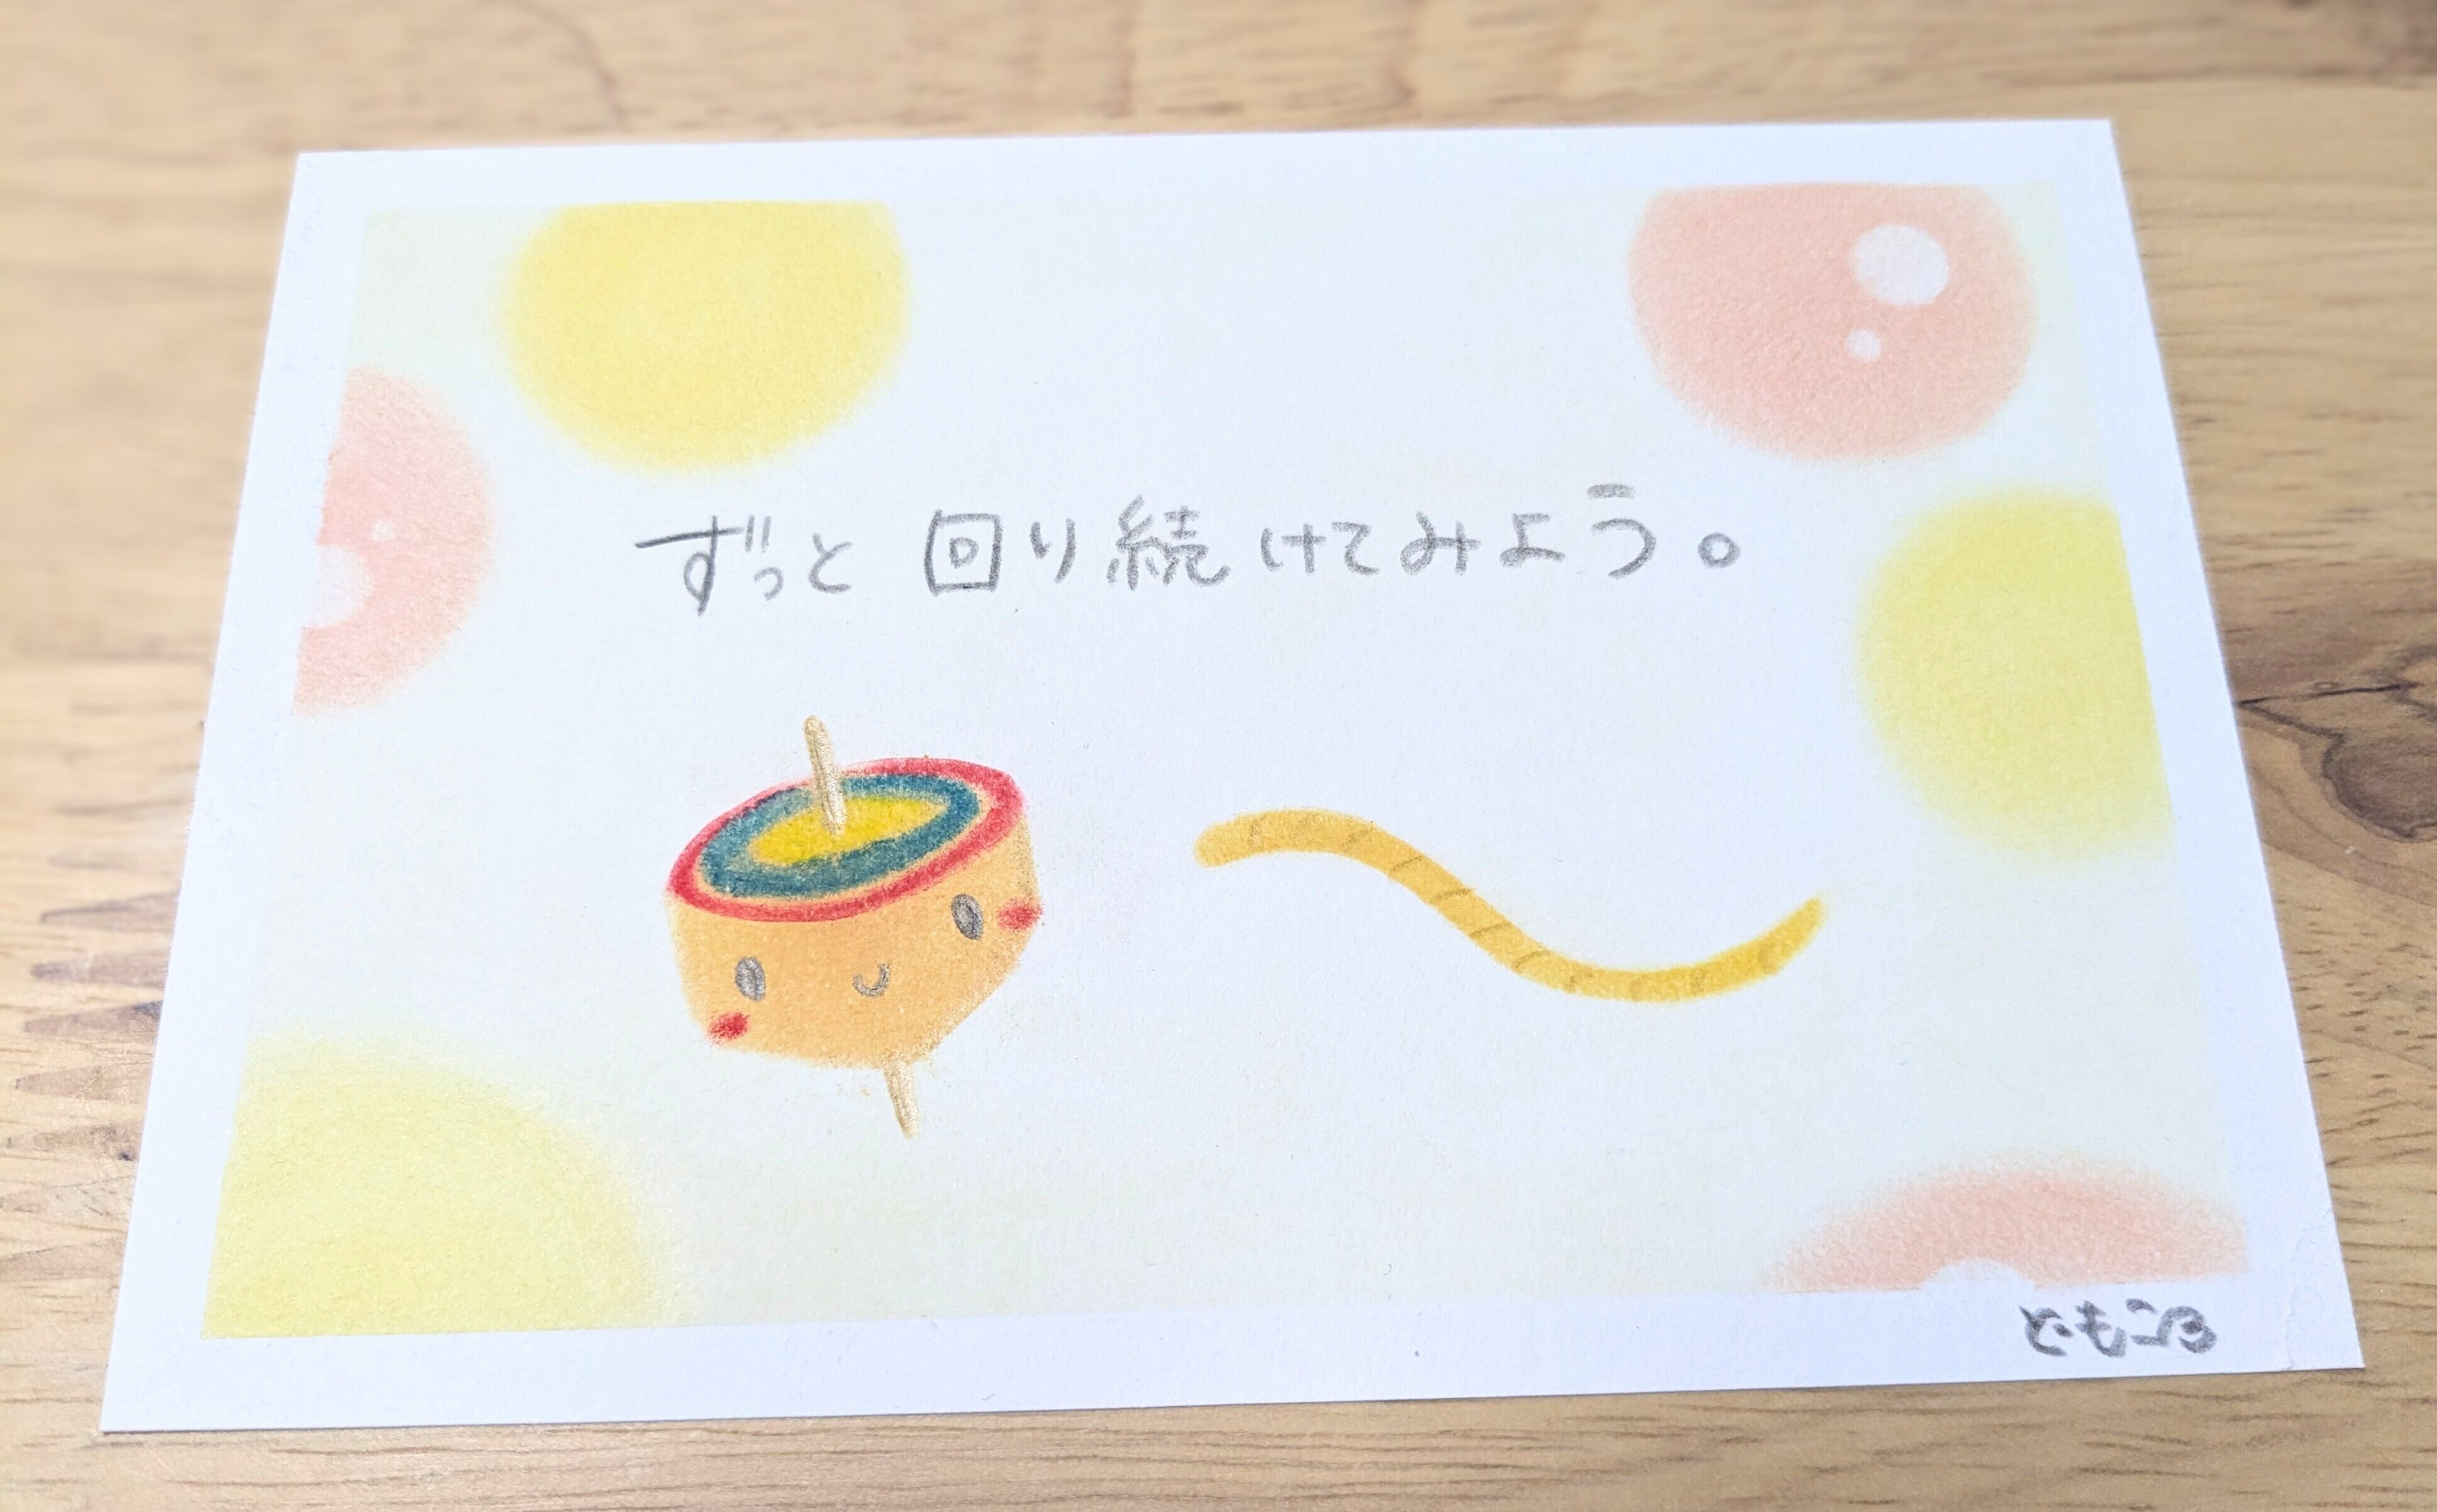 ずっと 回り続けてみよう。
ともころ